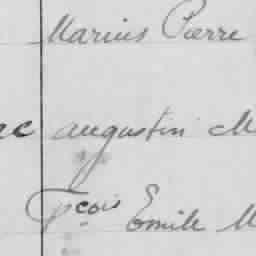 Marius Pierre
ac augustin M
Fçois Emile M